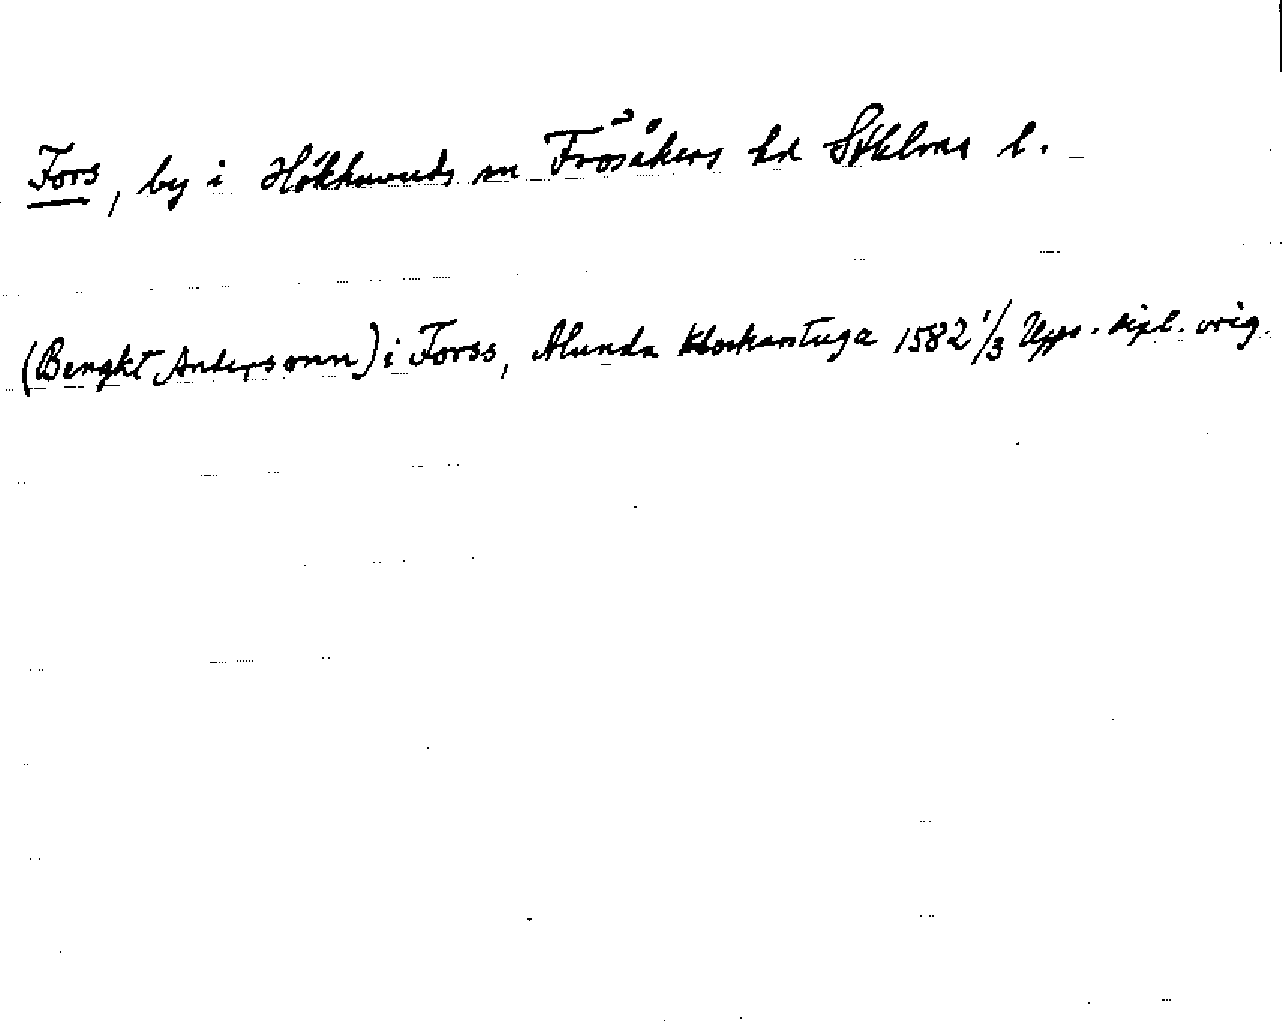 Fors, by i Hökhuvuds sn Frösåkers hd Sthlms l.
(Bengkt Andersonn) i Forss, Alunda klockarstuga 1582 1/3 Upps. dipl. orig.